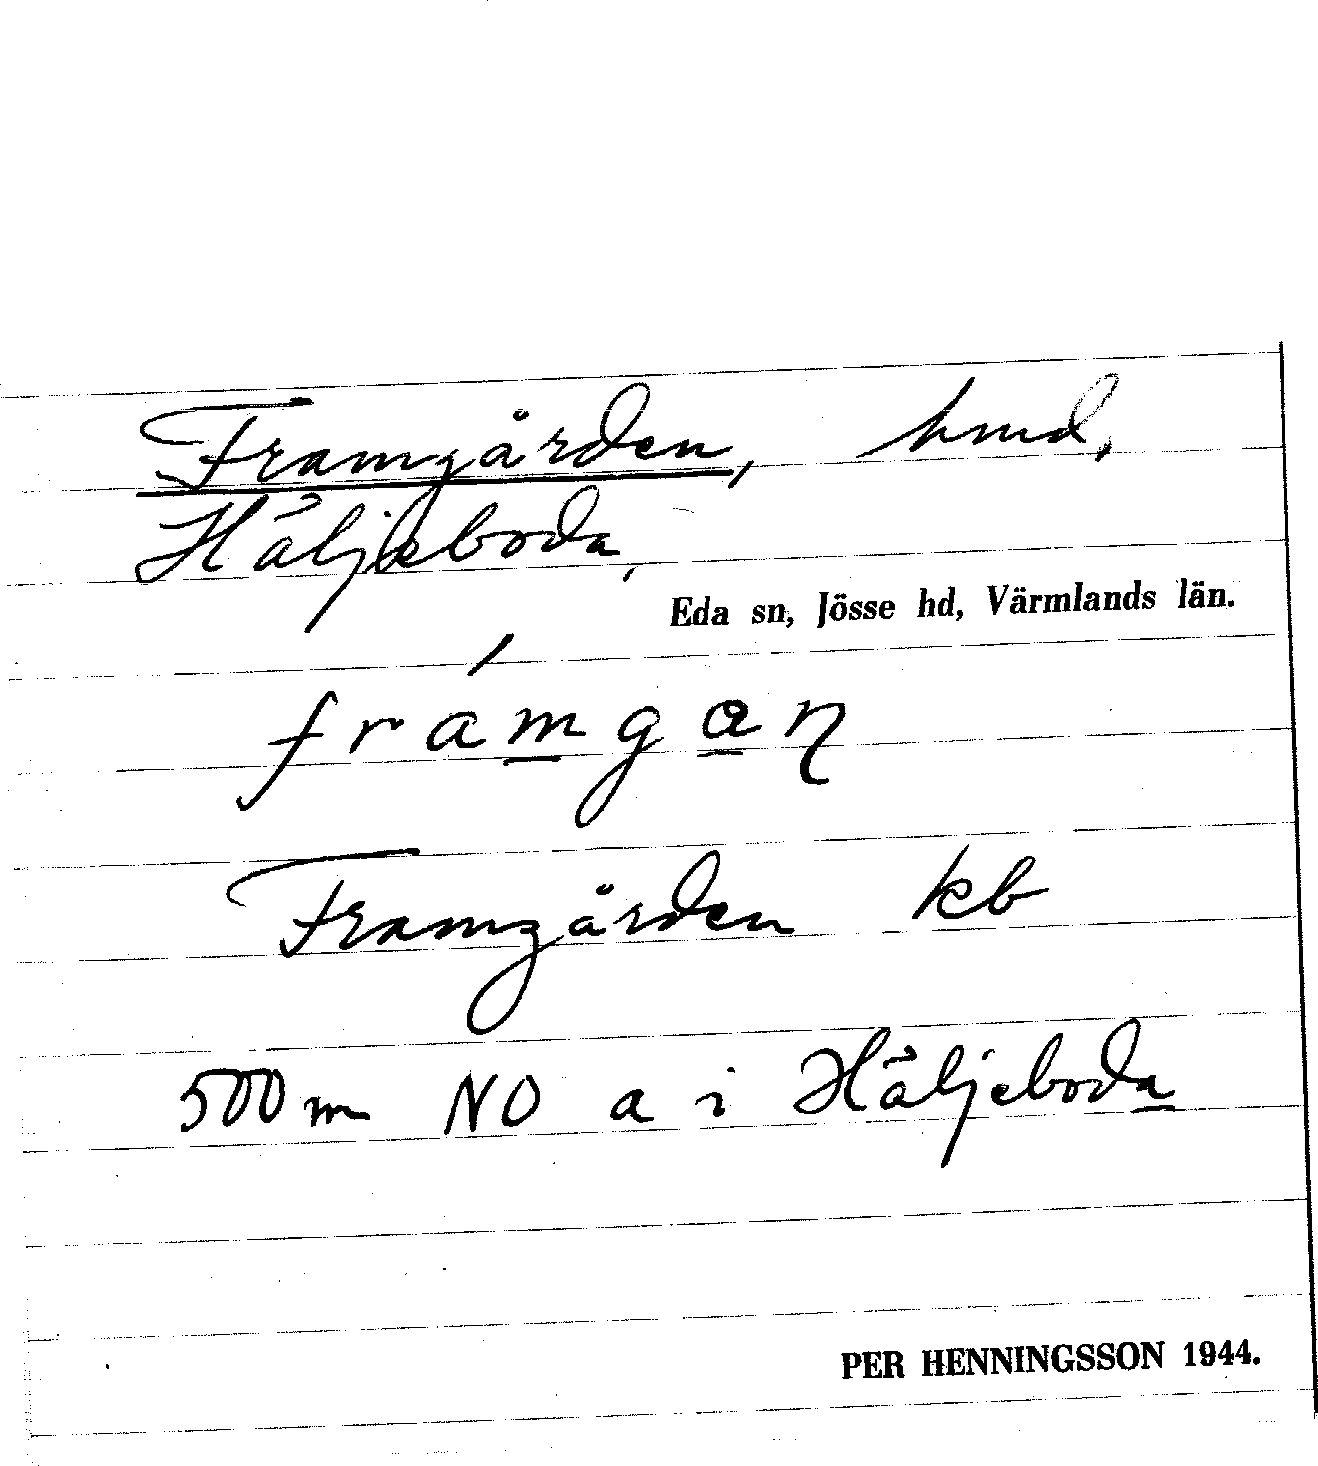 Framgården, hmd.
Håljeboda,
Eda sn, Jösse hd, Värmlands län.
Framgården kb
500 m NO a i Håljeboda
PER HENNINGSSON 1944.